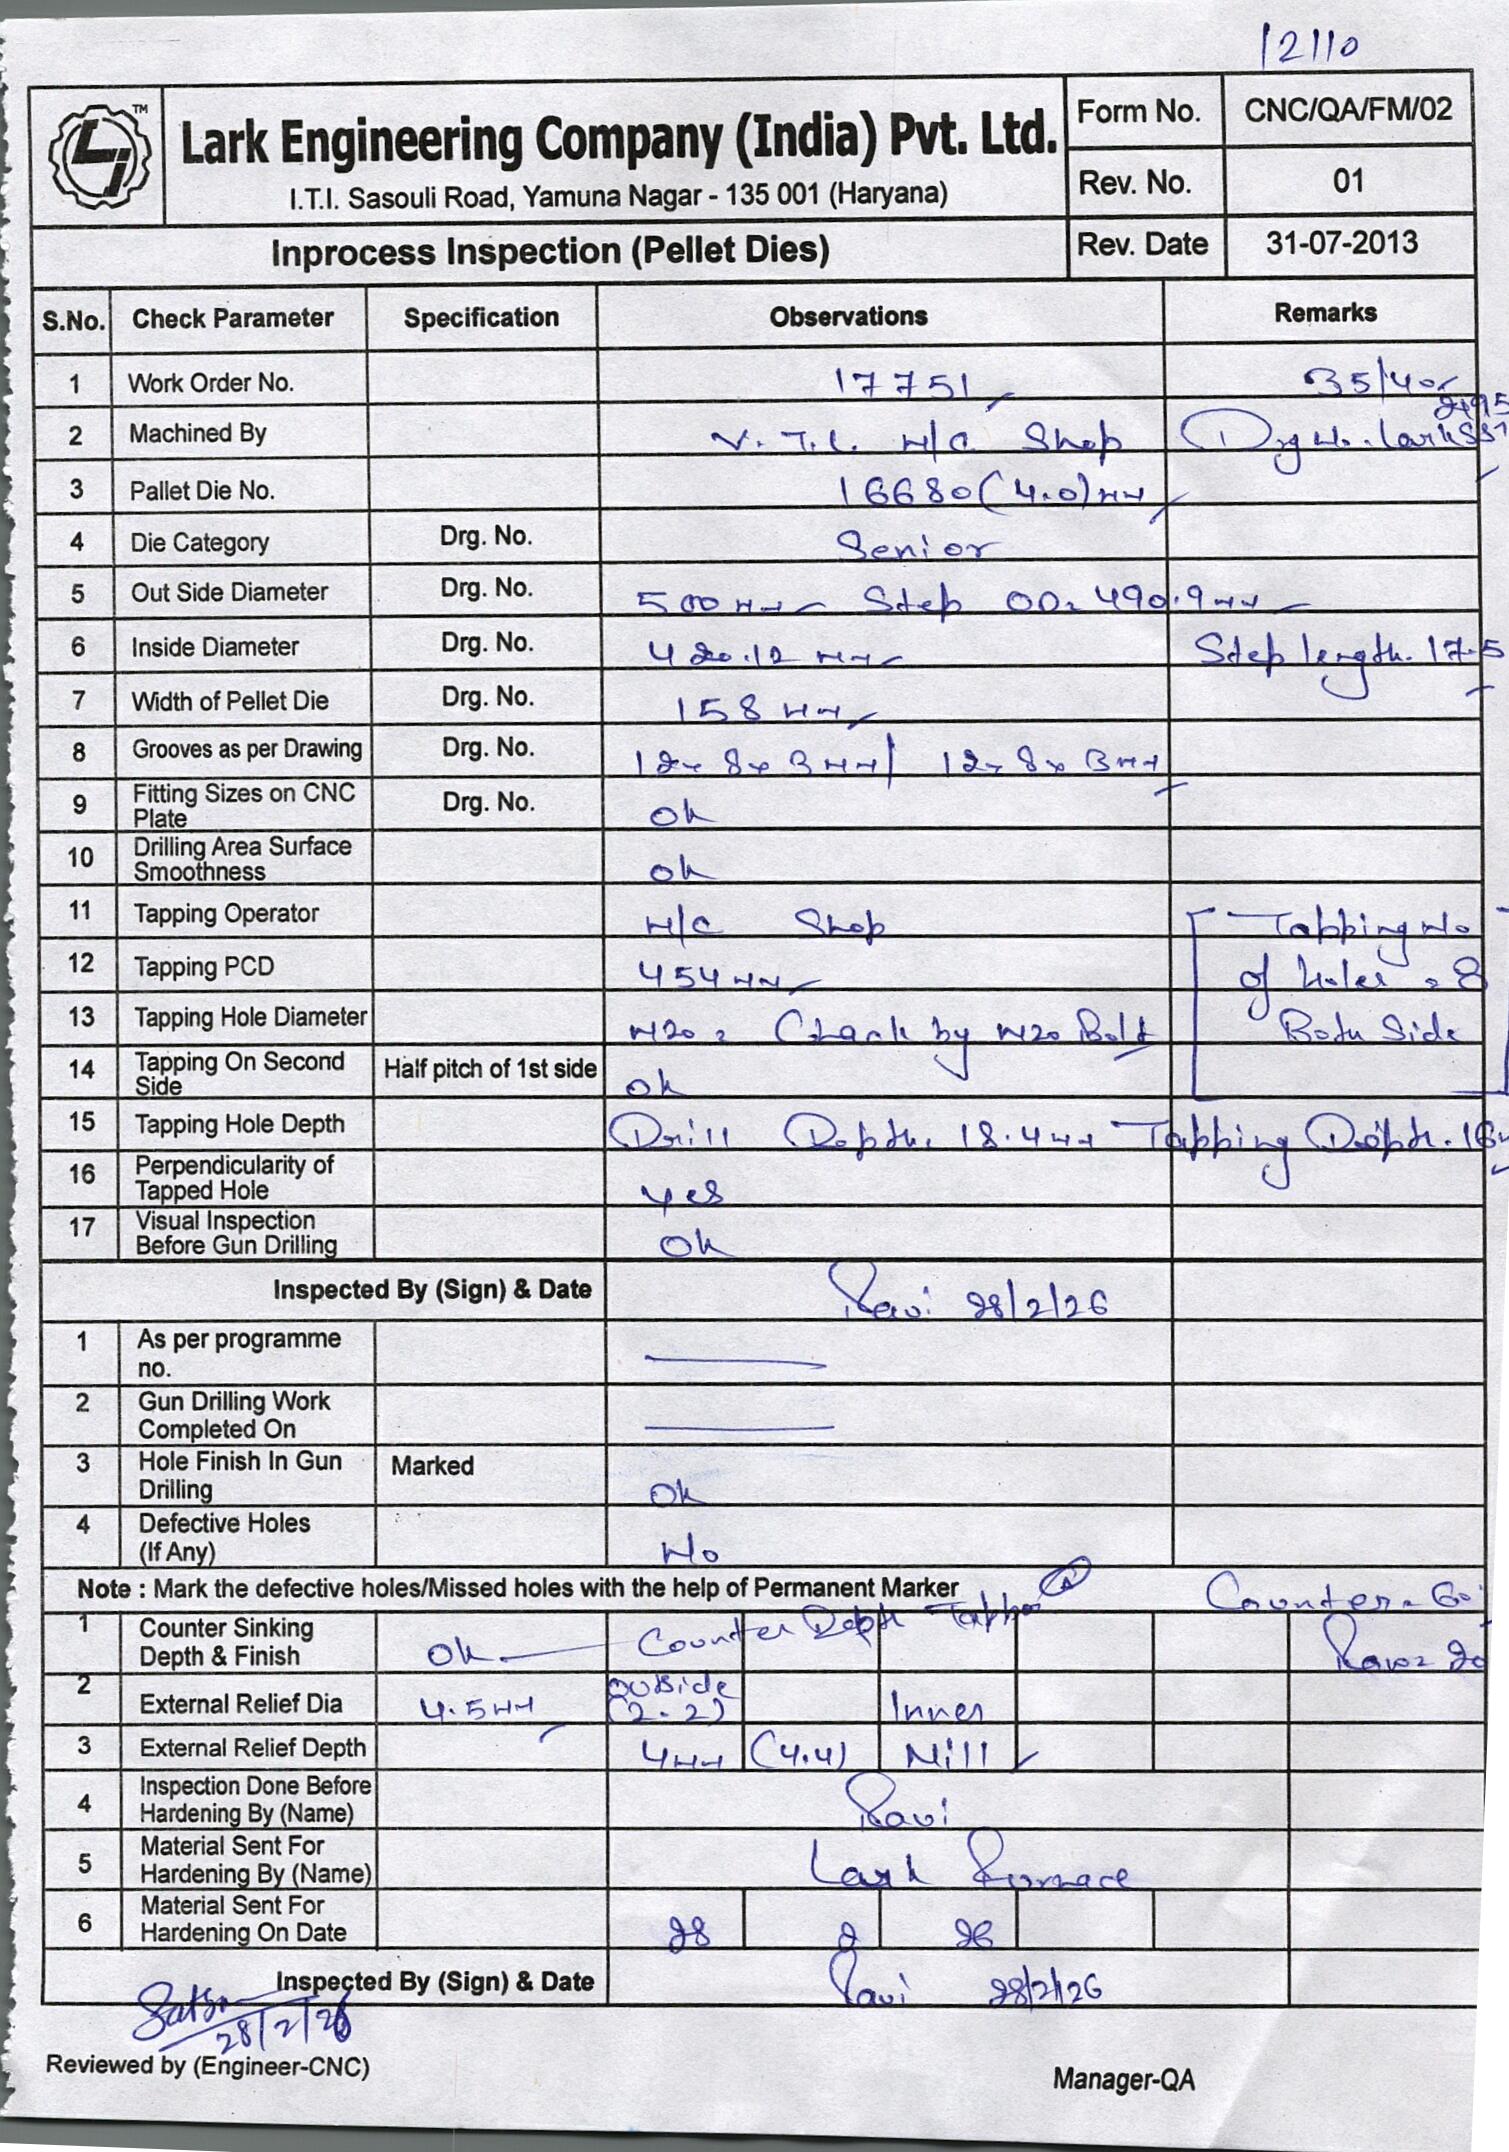 12110
TM
Lark Engineering Company (India) Pvt. Ltd.
I.T.I. Sasouli Road, Yamuna Nagar - 135 001 (Haryana)
Form No. CNC/QA/FM/02
Rev. No. 01
Inprocess Inspection (Pellet Dies)
Rev. Date 31-07-2013
S.No. Check Parameter Specification Observations Remarks
1 Work Order No. 17751 35/40
2 Machined By V.T.L. M/C Shop Drg No. Lark
3 Pallet Die No. 16680 (4.0) mm
4 Die Category Drg. No. Senior
5 Out Side Diameter Drg. No. 500 mm Step OD = 490.9 mm
6 Inside Diameter Drg. No. 420.12 mm Step length. 17.5
7 Width of Pellet Die Drg. No. 158 mm
8 Grooves as per Drawing Drg. No. 12x8x3mm/ 12x8x3mm
9 Fitting Sizes on CNC Plate Drg. No. Ok
10 Drilling Area Surface Smoothness Ok
11 Tapping Operator M/C Shop Tapping No
12 Tapping PCD 454 mm of holes = 8
13 Tapping Hole Diameter M20 = Chack by M20 Bolt Both Side
14 Tapping On Second Side Half pitch of 1st side Ok
15 Tapping Hole Depth Drill Depth. 18.4 mm Tapping Depth.
16 Perpendicularity of Tapped Hole Yes
17 Visual Inspection Before Gun Drilling Ok
Inspected By (Sign) & Date Ravi 28/2/26
1 As per programme no.
2 Gun Drilling Work Completed On
3 Hole Finish In Gun Drilling Marked Ok
4 Defective Holes (If Any) No
Note : Mark the defective holes/Missed holes with the help of Permanent Marker Counter = 60
1 Counter Sinking Depth & Finish Ok Counter Depth
2 External Relief Dia 4.5 mm Outside (2.2) Inner
3 External Relief Depth 4mm (4.4) Nill
4 Inspection Done Before Hardening By (Name) Ravi
5 Material Sent For Hardening By (Name) Lark Furnace
6 Material Sent For Hardening On Date 28 2 26
Inspected By (Sign) & Date Ravi 28/2/26
28/2/26
Reviewed by (Engineer-CNC)
Manager-QA